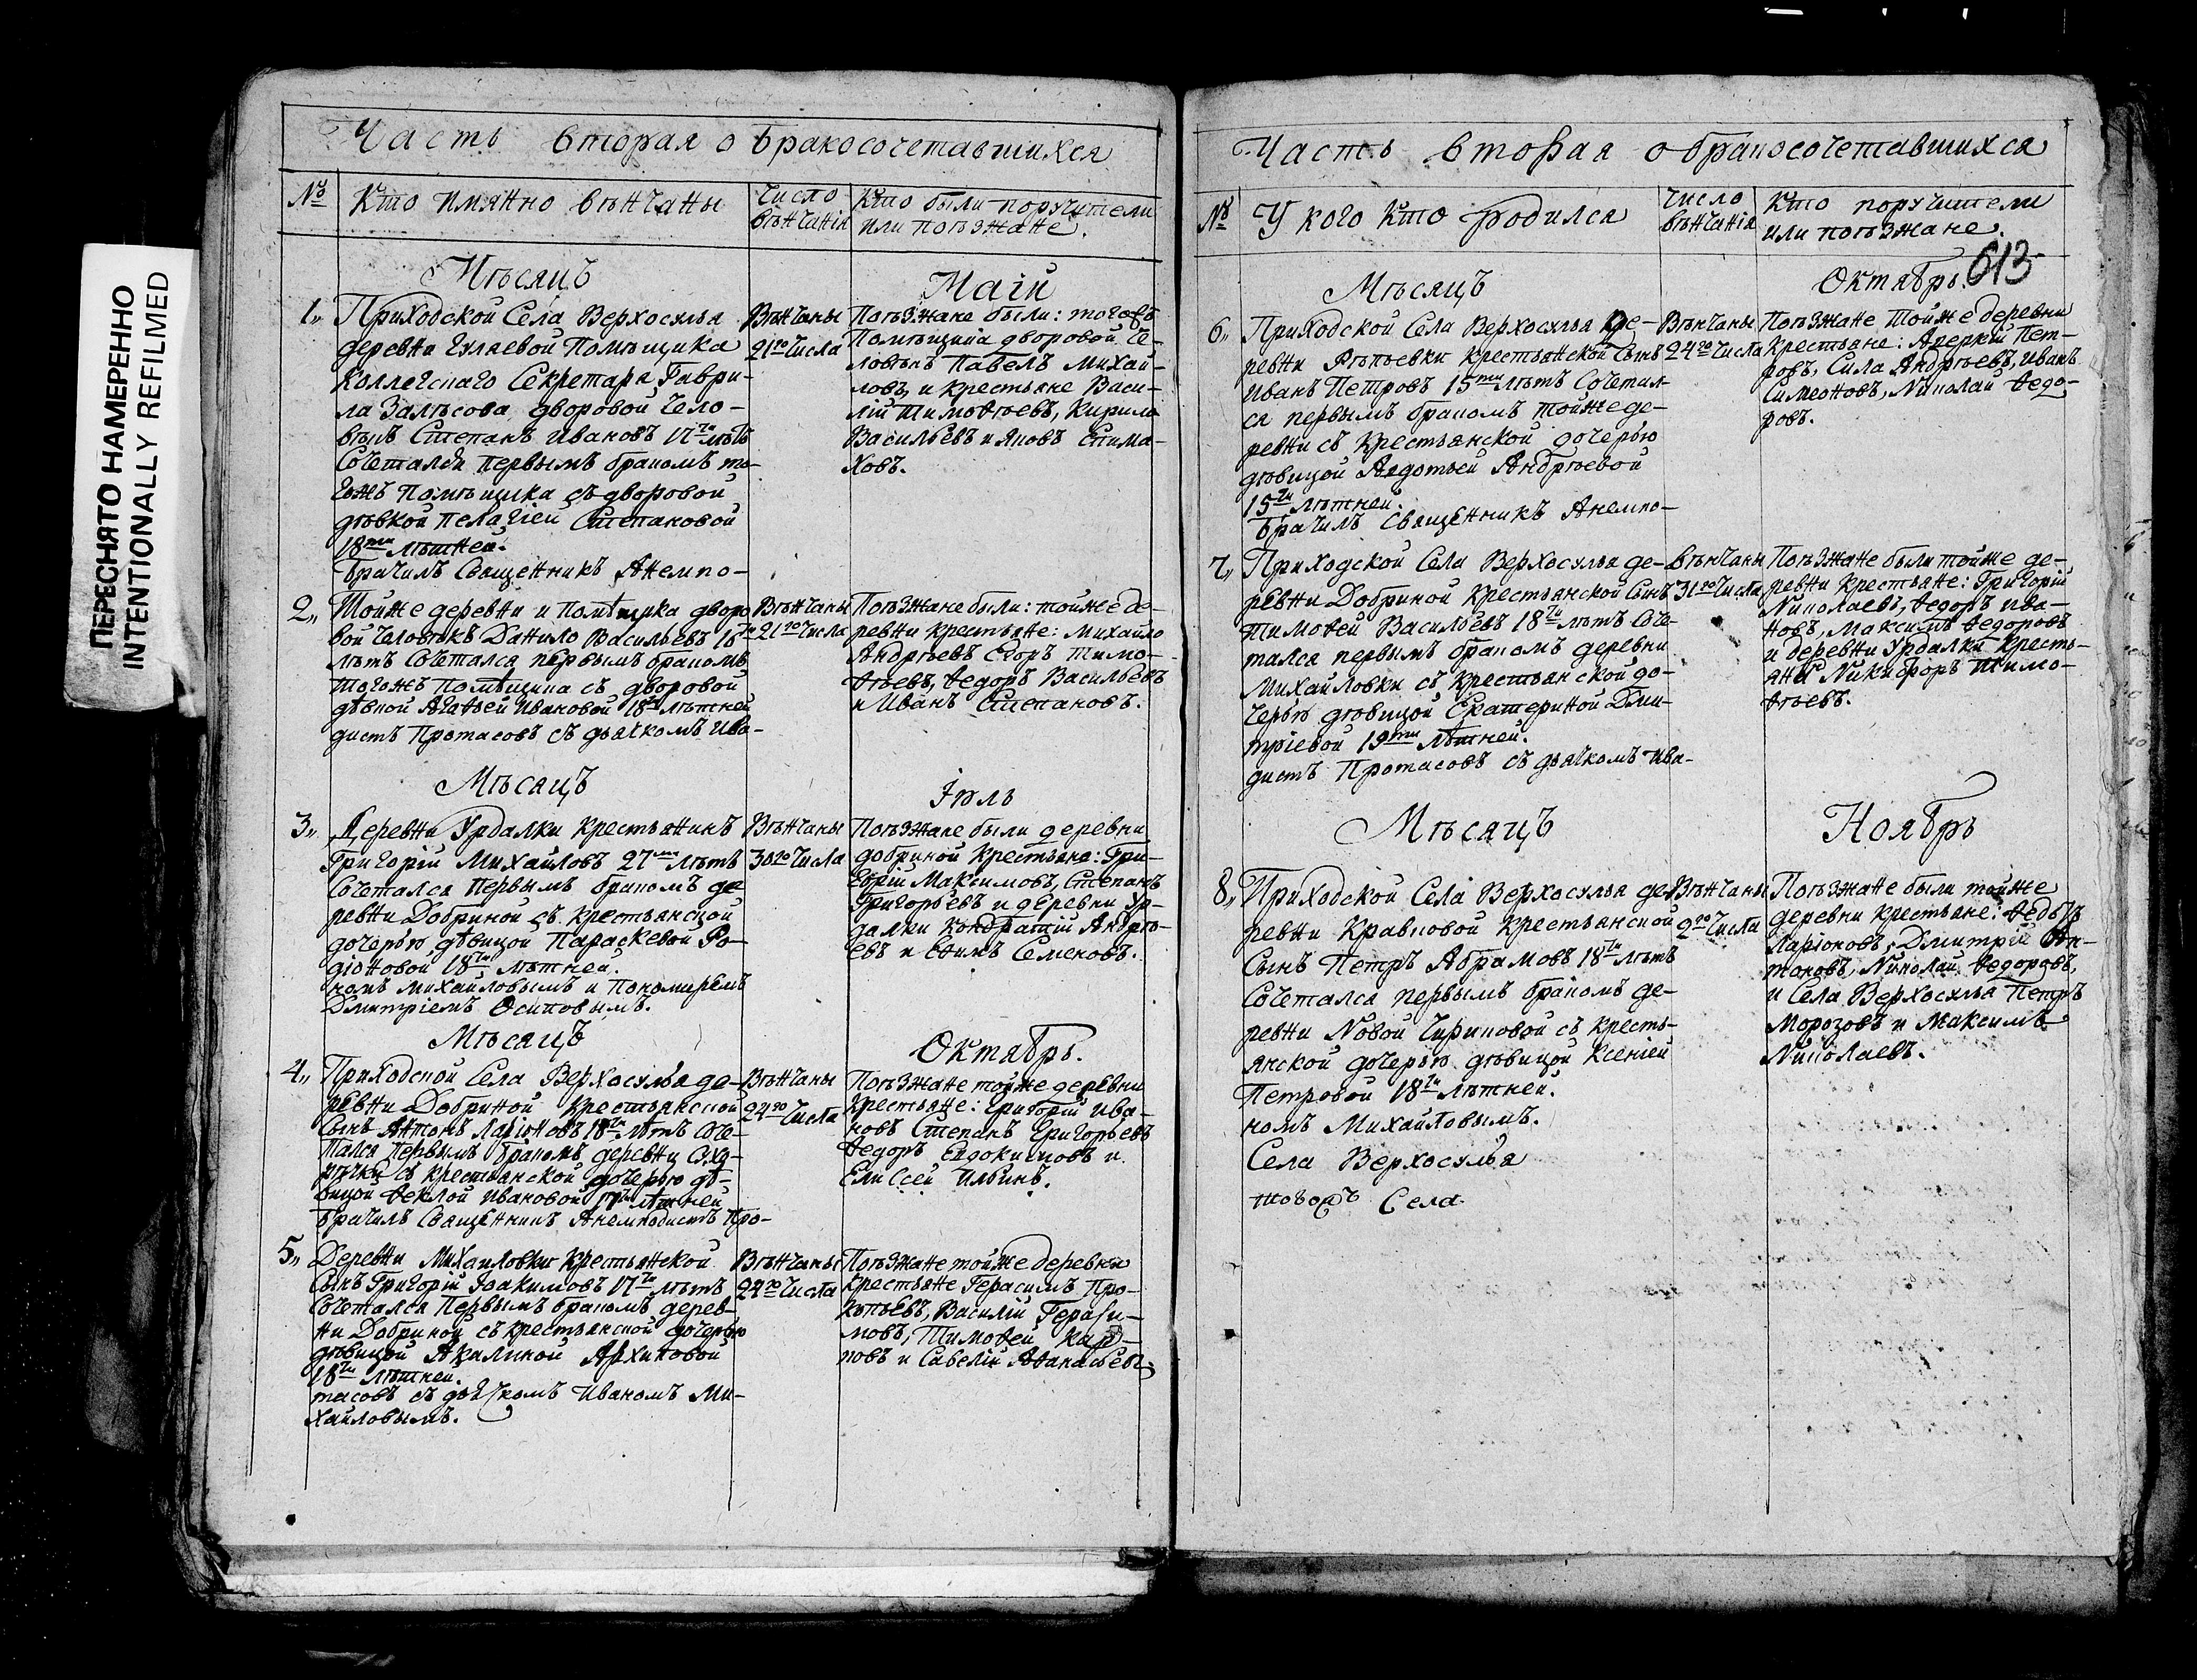 ПЕРЕСНЯТО НАМЕРЕННО
INTENTIONALLY REFILMED
Часть вторая о бракосочетавшихся
№
Кто имянно вѣнчаны
Число
вѣнчанія
Кто были поручители
или поѣзжане.
Мѣсяцъ
Маій
1,, Приходской Села Верхосулья
деревни Гуляевой Помѣщика
Коллегскаго Секретаря Гаври-
ла Залѣсова дворовой чело-
вѣкъ Степанъ Ивановъ лѣтъ
Сочетался первымъ бракомъ то-
гожъ Помѣщика съ дворовой
дѣвкой Пелагіей Степановой
18ти лѣтней.
Брачилъ Священникъ Анемпо-
Вѣнчаны
21го Числа
Поѣзжане были: тогожъ
Помѣщика дворовой че-
ловѣкъ Павелъ Михай-
ловъ, и крестьяне Васи-
лій Тимоѳѣевъ, Кирило
Васильевъ и Яковъ
ховъ.
2,, Тойже деревни и помѣщика дворо
вой человѣкъ Данило Васильевъ
лѣтъ Сочетался первымъ бракомъ
тогожъ помѣщика съ дворовой
дѣвкой Агаѳьей Ивановой 18ти лѣтней
дистъ Протасовъ съ дьячкомъ Ива-
Вѣнчаны
21го Числа
Поѣзжане были: тойже де-
ревни крестьяне: Михайло
Андрѣевъ Егоръ Тимо-
ѳѣевъ, Ѳедоръ Васильевъ
и Иванъ Степановъ.
Мѣсяцъ
Іюль
3,, Деревни Урдалки крестьянинъ
Григорій Михайловъ 27ми лѣтъ
Сочетался первымъ бракомъ де
ревни Добриной съ крестьянской
дочерью дѣвицой Параскевой Ро-
діоновой 18ти лѣтней.
номъ Михайловымъ и Пономаремъ
Дмитріемъ Осиповымъ.
Вѣнчаны
30го Числа
Поѣзжане были деревни
добриной крестьяне: Гри-
горій Максимовъ, Степанъ
Григорьевъ и деревни Ур-
далки Кондратій Андрѣ-
евъ и Ефимъ Семеновъ.
Мѣсяцъ
Октябрь.
4,, Приходской Села Верхосулья де-
ревни Добриной крестьянской
Сынъ Антонъ Ларіоновъ 18ти лѣтъ Соче-
тался первымъ бракомъ деревни Сухо-
рѣчки съ крестьянской дочерью дѣ-
вицой Ѳеклой Ивановой лѣтней
Брачилъ Священникъ Анемподистъ Про-
Вѣнчаны
24го Числа
Поѣзжане тойже деревни
крестьяне: Григорій Ива-
новъ Степанъ Григорьевъ
Ѳедоръ Евдокимовъ и
Елисей Ильинъ.
5,, Деревни Михайловки крестьянской
Сынъ Григорій Іоакимовъ лѣтъ
Сочетался первымъ бракомъ дерев-
ни Добриной съ крестьянской дочерью
дѣвицой Акалиной Архиповой
18ти лѣтней.
тасовъ съ дьячкомъ Иваномъ Ми-
хайловымъ.
Вѣнчаны
24го Числа
Поѣзжане тойже деревни
крестьяне Герасимъ Про-
копьевъ, Василій Гераси-
мовъ, Тимоѳей Кар-
повъ и Савелій Аѳанасьевъ
Часть вторая о бракосочетавшихся
№
У кого кто родился
Число
вѣнчанія
Кто поручители
или поѣзжане.
613
Мѣсяцъ
Октябрь.
6,, Приходской Села Верхосулья де-
ревни Рѣпьевки крестьянской Сынъ
Иванъ Петровъ 15ти лѣтъ Сочетал-
ся первымъ бракомъ тойже де-
ревни съ крестьянской дочерью
дѣвицой Авдотьей Андрѣевой
15ти лѣтней.
Брачилъ Священникъ Анемпо-
Вѣнчаны
24го Числа
Поѣзжане тойже деревни
Крестьяне: Аверкій Пет-
ровъ, Сила Андрѣевъ, Иванъ
Симеоновъ, Николай Ѳедо-
ровъ.
7,, Приходской Села Верхосулья де-
ревни Добриной крестьянской Сынъ
Тимоѳей Васильевъ 18ти лѣтъ Соче-
тался первымъ бракомъ деревни
Михайловки съ крестьянской до-
черью дѣвицой Екатериной Дми-
тріевой 19ти лѣтней.
дистъ Протасовъ съ дьячкомъ Ива-
Вѣнчаны
31го Числа
Поѣзжане были тойже де-
ревни крестьяне: Григорій
Николаевъ, Ѳедоръ Ива-
новъ, Максимъ Ѳедоровъ
и деревни Урдалки Кресть-
янъ Никифоръ Тимо-
ѳѣевъ.
Мѣсяцъ
Ноябрь
8,, Приходской Села Верхосулья де-
ревни Кравковой Крестьянской
Сынъ Петръ Абрамовъ 18ти лѣтъ
Сочетался первымъ бракомъ де-
ревни Новой Чириковой съ кресть-
янской дочерью дѣвицой Ксеніей
Петровой 18ти лѣтней.
номъ Михайловымъ.
Села Верхосулья
тогожъ Села
Вѣнчаны
9го Числа
Поѣзжане были тойже
деревни крестьяне: Ѳедотъ
Ларіоновъ, Дмитрій Ан-
тоновъ, Николай Ѳедоровъ,
и Села Верхосулья Петръ
Морозовъ и Максимъ
Николаевъ.